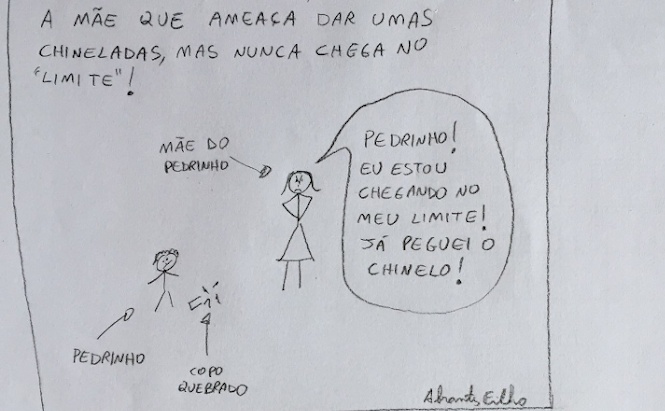 A MÃE QUE AMEAÇA DAR UMAS
CHINELADAS, MAS NUNCA CHEGA NO
"LIMITE"!
MÃE DO
PEDRINHO
PEDRINHO!
EU ESTOU
CHEGANDO NO
MEU LIMITE!
JÁ PEGUEI O
CHINELO!
PEDRINHO
COPO
QUEBRADO
Abrantes Filho